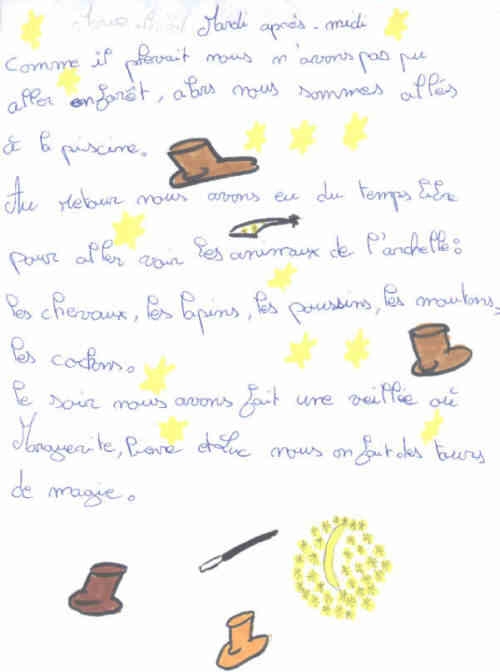 Mardi après-midi
Comme il pleuvait nous n'avons pas pu
aller en forêt, alors nous sommes allés
à la piscine.
Au retour nous avons eu du temps libre
pour aller voir les animaux de l'archelle :
les chevaux, les lapins, les poussins, les moutons,
les cochons.
Le soir nous avons fait une veillée où
Marguerite, Pierre et Luc nous on fait des tours
de magie.